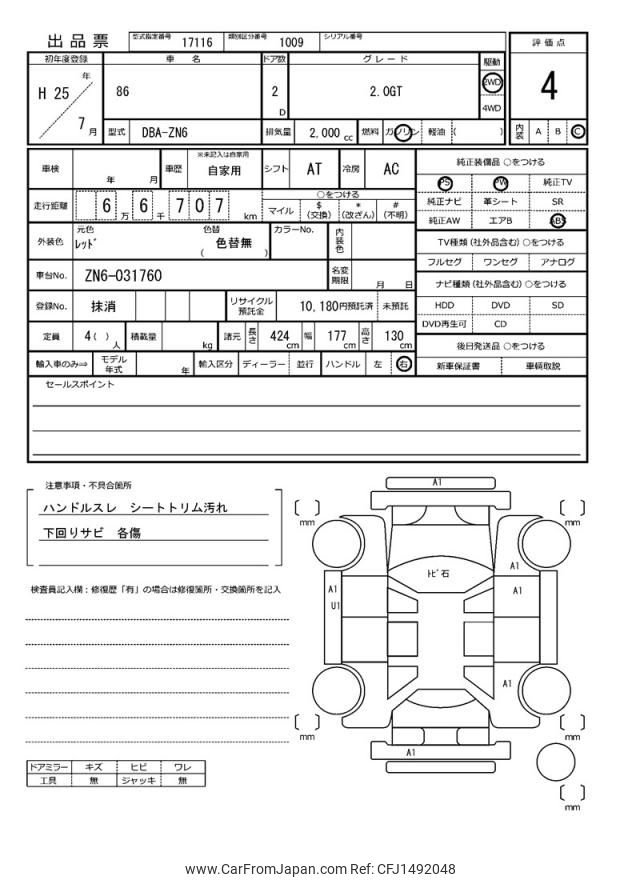 出品票 型式指定番号 17116 類別区分番号 1009 シリアル番号
評価点
4
初年度登録 車名 ドア数 グレード 駆動
H 25 年 7 月
86
2 D
2.0GT
2WD
4WD
型式 DBA-ZN6 排気量 2,000 cc 燃料 ガソリン 軽油 ( )
内装 A B C
車検 年 月 車歴 ※未記入は自家用 自家用 シフト AT 冷房 AC
走行距離 6 万 6 千 7 0 7 km
○をつける
マイル $(交換) *(改ざん) #(不明)
外装色 元色 レッド 色替 ( 色替無 ) カラーNo. 内装色
車台No. ZN6-031760 名変期限 月 日
登録No. 抹消 リサイクル預託金 10,180円預託済 未預託
定員 4( ) 人 積載量 kg 諸元 長さ 424 cm 幅 177 cm 高さ 130 cm
輸入車のみ⇒ モデル年式 年 輸入区分 ディーラー 並行 ハンドル 左 右
純正装備品 ○をつける
PS PW 純正TV
純正ナビ 革シート SR
純正AW エアB ABS
TV種類(社外品含む)○をつける
フルセグ ワンセグ アナログ
ナビ種類(社外品含む)○をつける
HDD DVD SD
DVD再生可 CD
後日発送品 ○をつける
新車保証書 車輌取説
セールスポイント
注意事項・不具合箇所
ハンドルスレ シートトリム汚れ
下回りサビ 各傷
検査員記入欄：修復歴「有」の場合は修復箇所・交換箇所を記入
ドアミラー キズ ヒビ ワレ
工具 無 ジャッキ 無
A1
mm
mm
トビ石
A1
A1
U1
A1
A1
mm
mm
A1
mm
www.CarFromJapan.com Ref: CFJ1492048